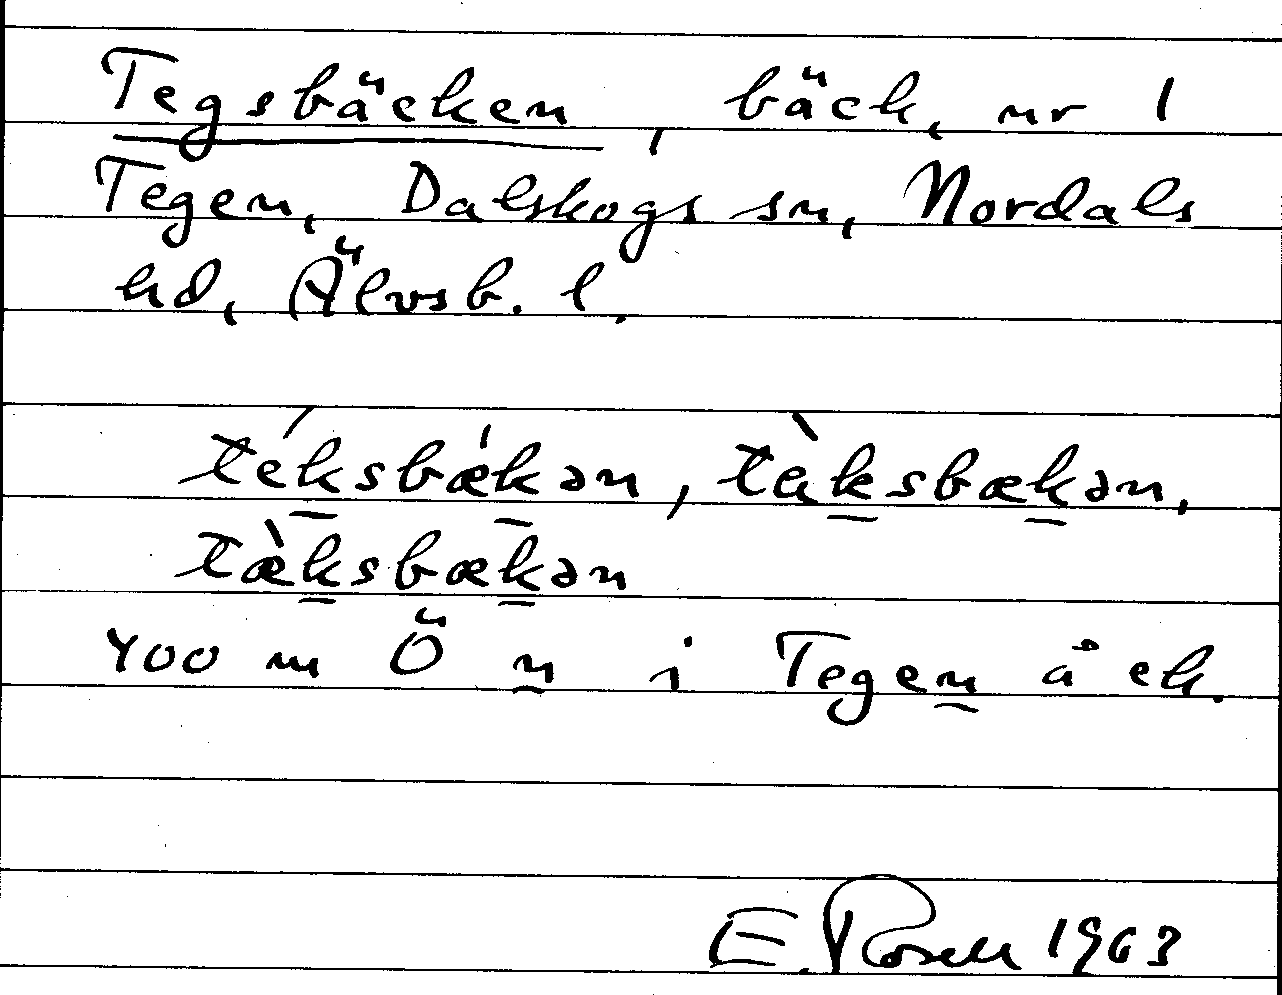 Tegsbäcken, bäck, nr 1
Tegen, Dalskogs sn, Nordals
hd, Älvsb. l.
téksbǽkən, tèksbækən,
tæ̀ksbækən
400 m Ö n i Tegen å ek.
E. Rosell 1963